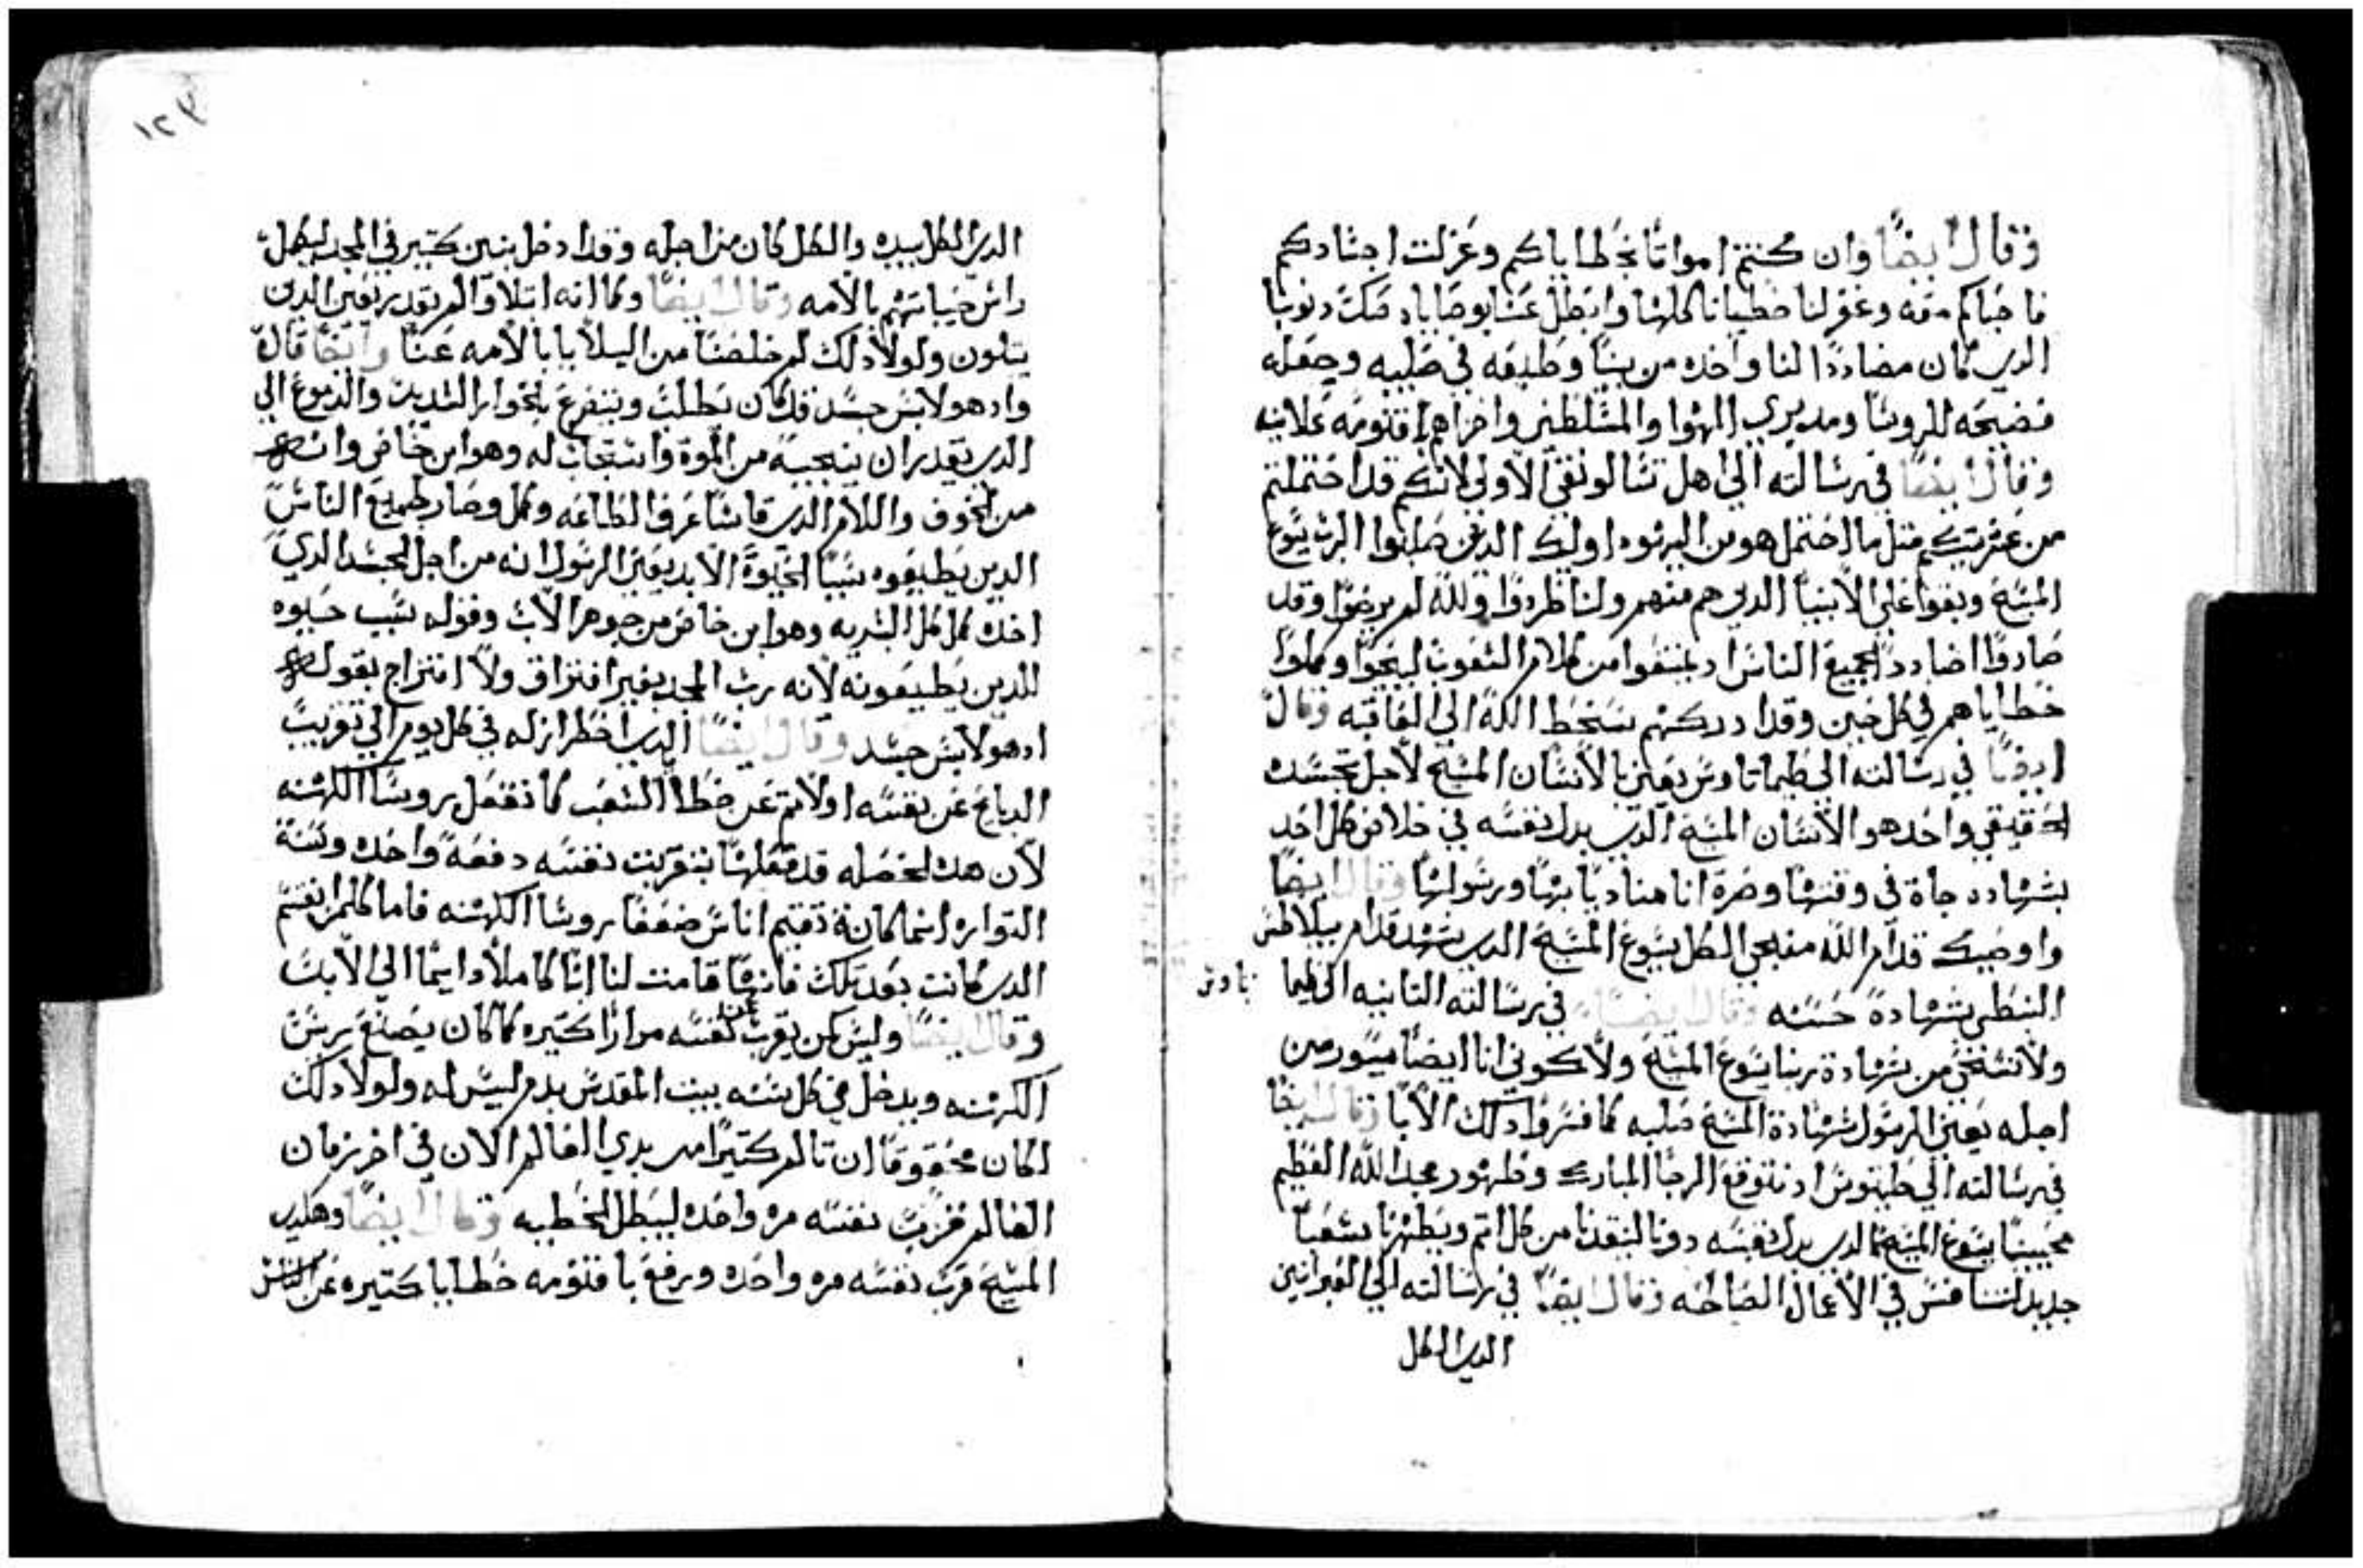 وقال ايضًا وان كنتم امواتًا بخطاياكم وغرلت اجسادكم
فاحياكم معه وغفر لنا خطايانا كلها وابطل عنا بوصاياه صك دنوبنا
الدي كان مضاددًا لنا واخده من بيننا وصليبه وجعله
فضيحه للروسا ومديري الهوا والمسلطين واخزاهم اقنومه علانيه
وقال ايضًا في رسالته الي اهل تسالونقي الاولي لانكم قد احتملتم
من عشيرتكم متل ما احتمل هو من اليهود اوليك الدين صلبوا الرب يسوع
المسيح وبغوا علي الانبيا الدين هم منهم ولنا طردوا ولله لم يرضوا وقد
صاروا اضاددًا لجميع الناس اد يمنعونا من كلام الشعوب لينجوا وكملوا
خطاياهم في كل حين وقد ادركهم سخط الله الي العاقبه وقال
ايضًا في رسالته الي طيماتاوس يعين بالانسان المسيح لاجل تجسده
الحقيقي واحد هو الانسان المسيح الدي بدل نفسه في خلاص كل احد
بشهاده جاة في وقتها وصرة انا مناديًا بها ورسولها وقال ايضًا
واوصيك قدام الله منجي الكل يسوع المسيح الدي شهد قدام بيلاطس
النبطي شهادة حسنه وقال ايضًا في رسالته التانيه الي طيما تاوس
ولا تستخي من شهادة ربنا يسوع المسيح ولا تكوني انا ايضًا ميسور من
اجله يعين الرسول شهادة المسيح صلبه كما فسروا دلك الابا وقال ايضًا
في رسالته الي طيتوس اد نتوقع الرجا المبارك وظهور مجد الله العظيم
محيينا يسوع المسيح الدي بدل نفسه دوننا لينقدنا من كل اتم ويطهرنا شعبًا
جديد لنتنافس في الاعمال الصالحه وقال ايضًا في رسالته الي العبرانيين
الدي الكل
١٢٣
الدي الكل بيده والكل كان من اجله وقد ادخل بنين كتير في المجد ليكمل
راس حياتهم بالامه وقال ايضًا وكما انه ابتلا والم يقدر يعين الدين
يبتلون ولولا دلك لم خلصنا من البلايا بالامه عنا وايضًا قال
واد هو لابس جسد قد كان يطلب ويتضرع بالجوار الشديد والدموع الي
الدي يقدر ان ينجيه من الموة واستجاب له وهو ابن خاص
من الخوف والالام الدي قاسا عرف الطاعه وكمل وصار لجميع الناس
الدين يطيعوه سببًا لحيوة الابد يعين الرسول انه من اجل الجسد الدي
اخده كمل كل التدبير وهو ابن خاص من جوهر الاب وقوله سبب حيوه
للدين يطيعونه لانه رب المجد بغير افتراق ولا امتزاج بقوله
اد هو لابس جسد وقال ايضًا الدي اضطرار له في كل يوم الي تقريب
الدبايح عن نفسه اولا تم عن خطا الشعب كما تفعل روسا الكهنه
لان هده الخصله قد فعلها بتقريب نفسه دفعة واحده وسنة
التوراه انما كانة تقيم اناس ضعفا روسا الكهنه فاما كلمة القسم
الدي كانت بعد تلك فانها قامت لنا ابنًا كاملًا دايمًا الي الابد
وقال ايضًا وليس كمن يقرب عن نفسه مرارًا كتيره كما كان يصنع ريس
الكهنه ويدخل في كل سنه بيت المقدس بدم ليس له ولولا دلك
لكان محقوقًا ان تالم كتيرًا من بدي العالم الان في اخر زمان
العالم قرب نفسه مره واحده ليبطل الخطيه وقال ايضًا وهكدي
المسيح قرب نفسه مره واحده ورفع باقنومه خطايا كتيره عن الناس